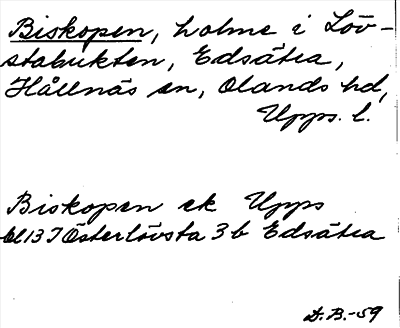 Biskopen, holme i Löv-
stabukten, Edsätra,
Hållnäs sn, Olands hd,
Upps. l.
Biskopen ek Upps
bl 13 I Österlövsta 3 b Edsätra
D. B. -59